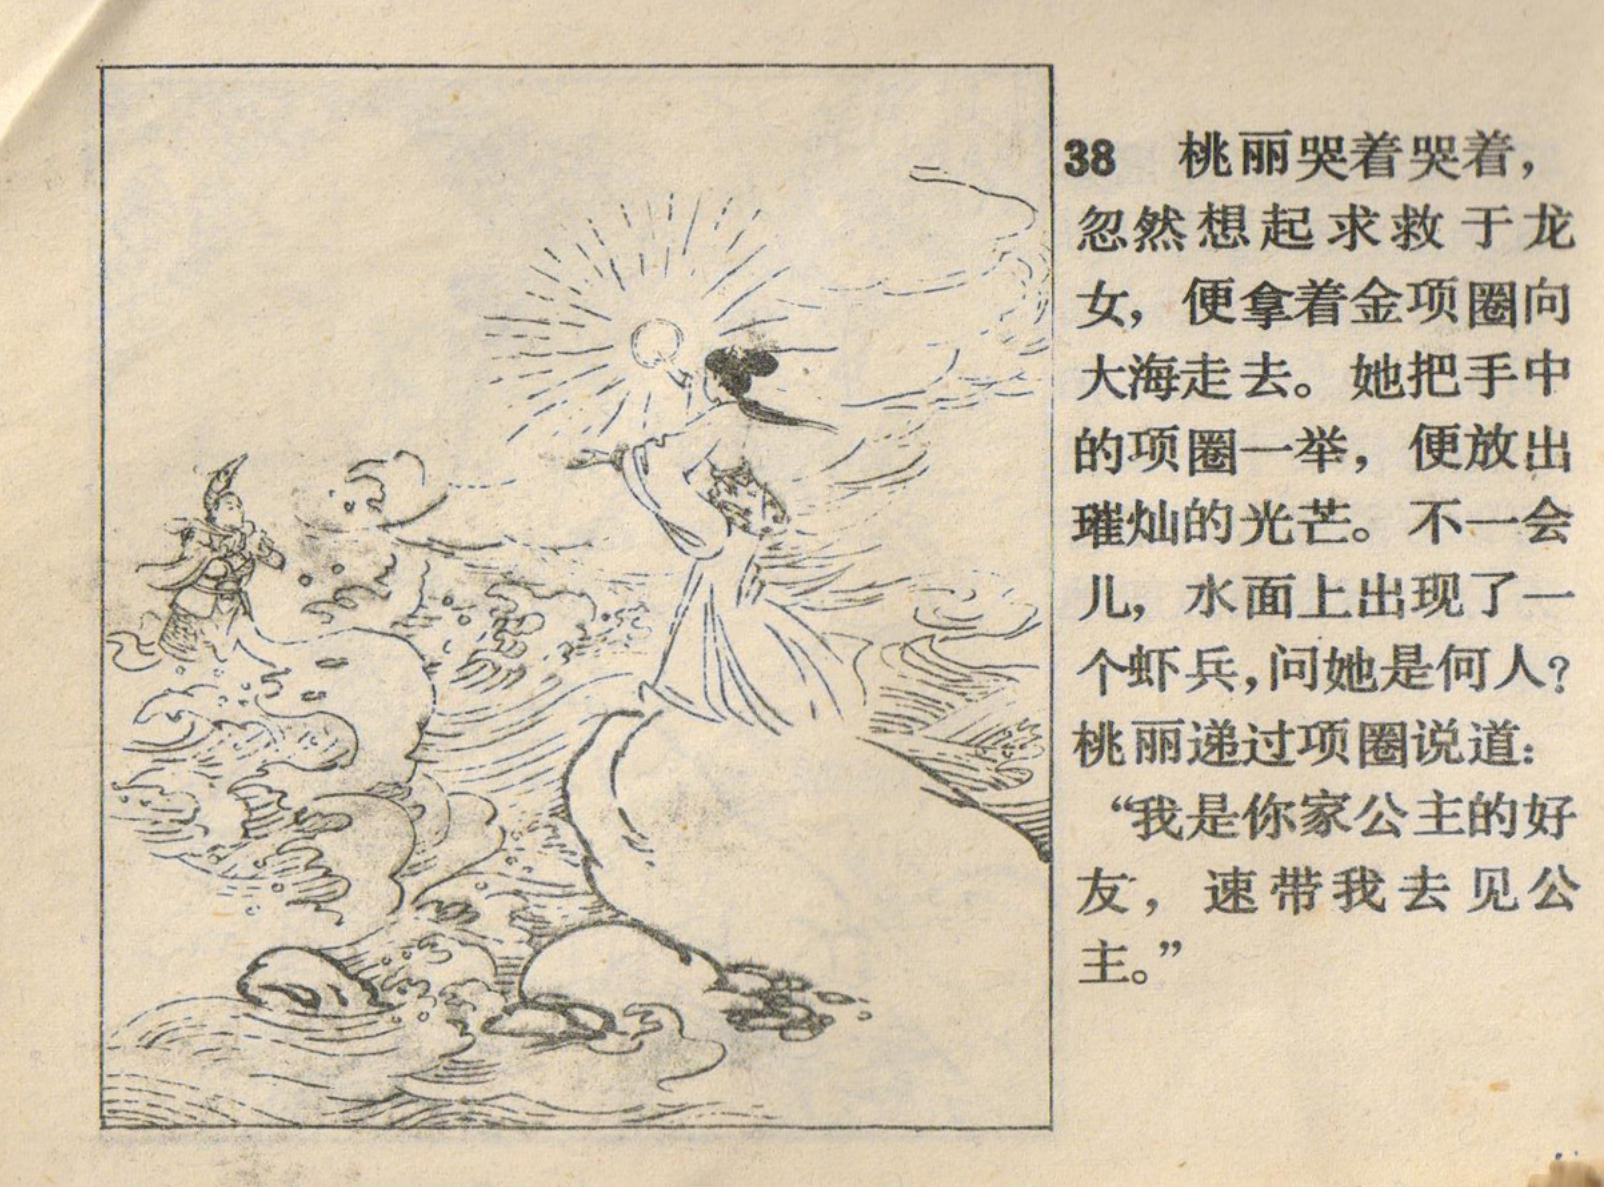 38 桃丽哭着哭着，
忽然想起求救于龙
女，便拿着金项圈向
大海走去。她把手中
的项圈一举，便放出
璀灿的光芒。不一会
儿，水面上出现了一
个虾兵，问她是何人？
桃丽递过项圈说道：
“我是你家公主的好
友，速带我去见公
主。”